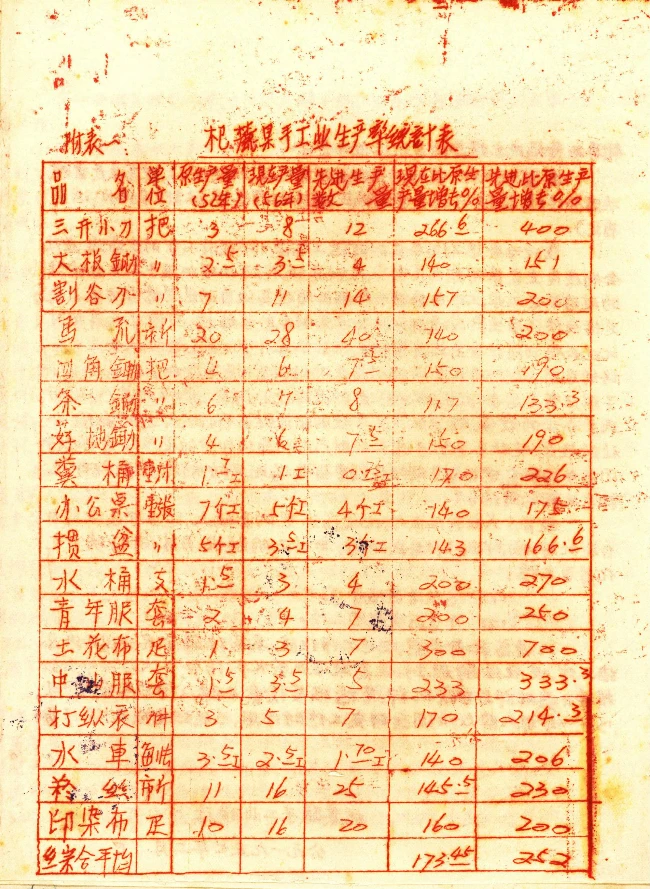 附表一
杞麓某手工业生产率统計表
品名 单位 原生产量(52年) 现在产量(56年) 先进生产数量 现在比原生产量增去% 先进比原生产量增去%
三开小刀 把 3 8 12 266.6 400
大板鋤 〃 2.5 3.5 4 140 151
割谷刀 〃 7 11 14 157 200
馬 市斤 20 28 40 140 200
四角鋤 把 4 6 7.5 150 190
条鋤 〃 6 7 8 117 133.3
挖鋤 〃 4 6 7.5 150 190
糞桶 170 226
办公桌 7个工 5个工 4个工 140 175
掼盆 〃 5个工 3.5工 3个工 143 166.6
水桶 支 1.5 3 4 200 270
青年服 套 2 4 7 200 250
土花布 疋 1 3 7 300 700
中山服 套 1.5 3.5 5 233 333.3
打纵衣 件 3 5 7 170 214.3
水車 3.5工 2.5工 1.70工 140 206
丝 市斤 11 16 25 145.5 230
印染布 疋 10 16 20 160 200
综合平均 173.45 252